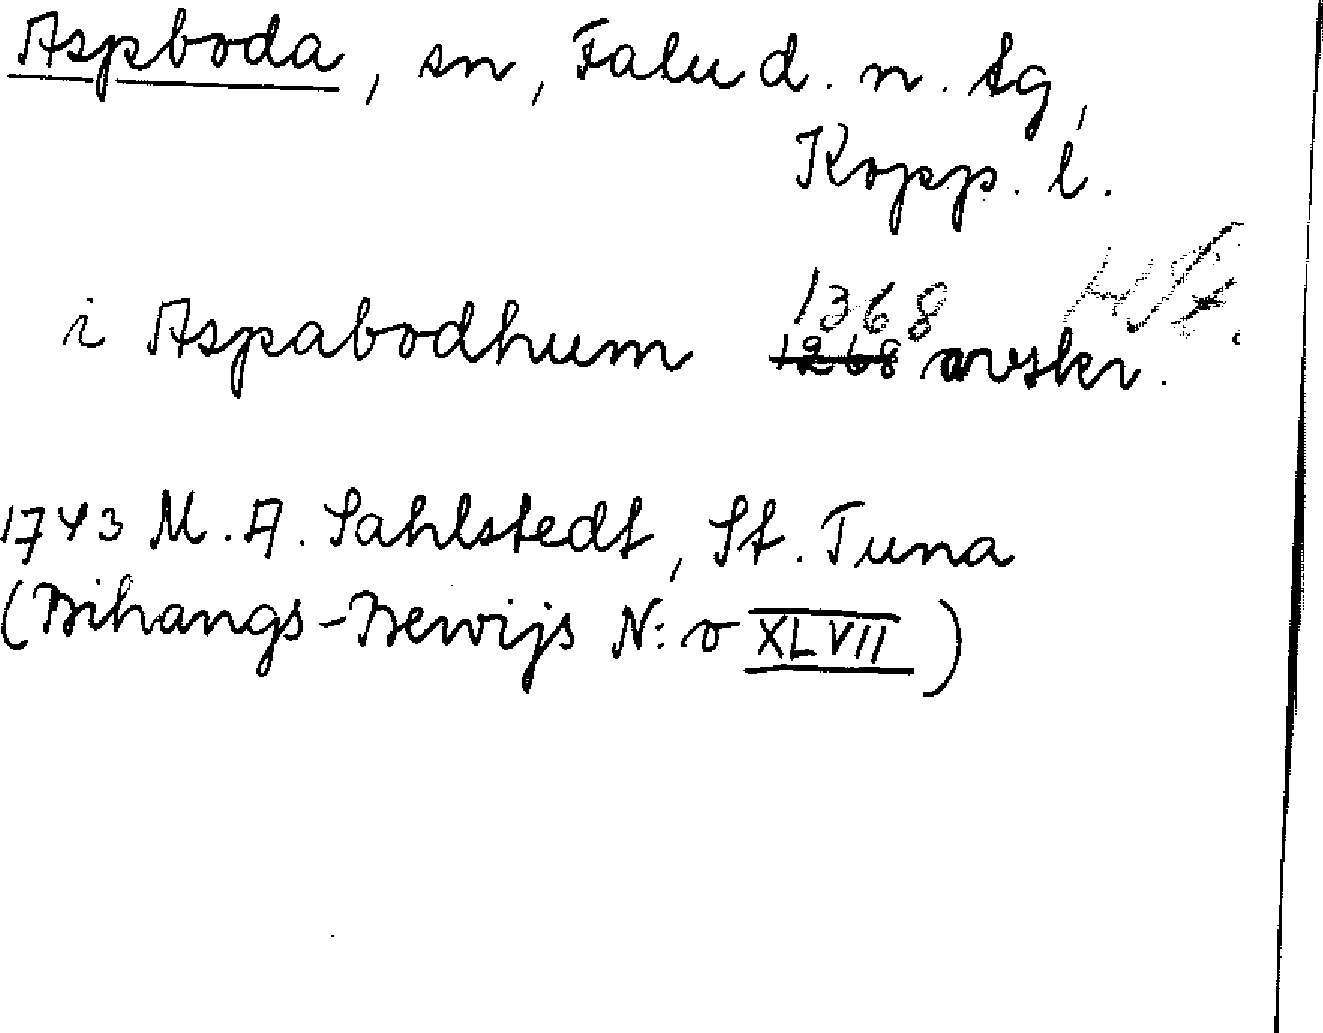 Aspboda, sn, Falu d. n. tg,
Kopp. l.
i Aspabodhum 1368 avskr.
1268
1743 M. A. Sahlstedt, St. Tuna
(Bihangs-Bewijs N:o XLVII)